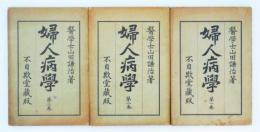 醫學士山田謙治著
婦人病學
第三卷
不自欺堂藏版
醫學士山田謙治著
婦人病學
第二卷
不自欺堂藏版
醫學士山田謙治著
婦人病學
第一卷
不自欺堂藏版